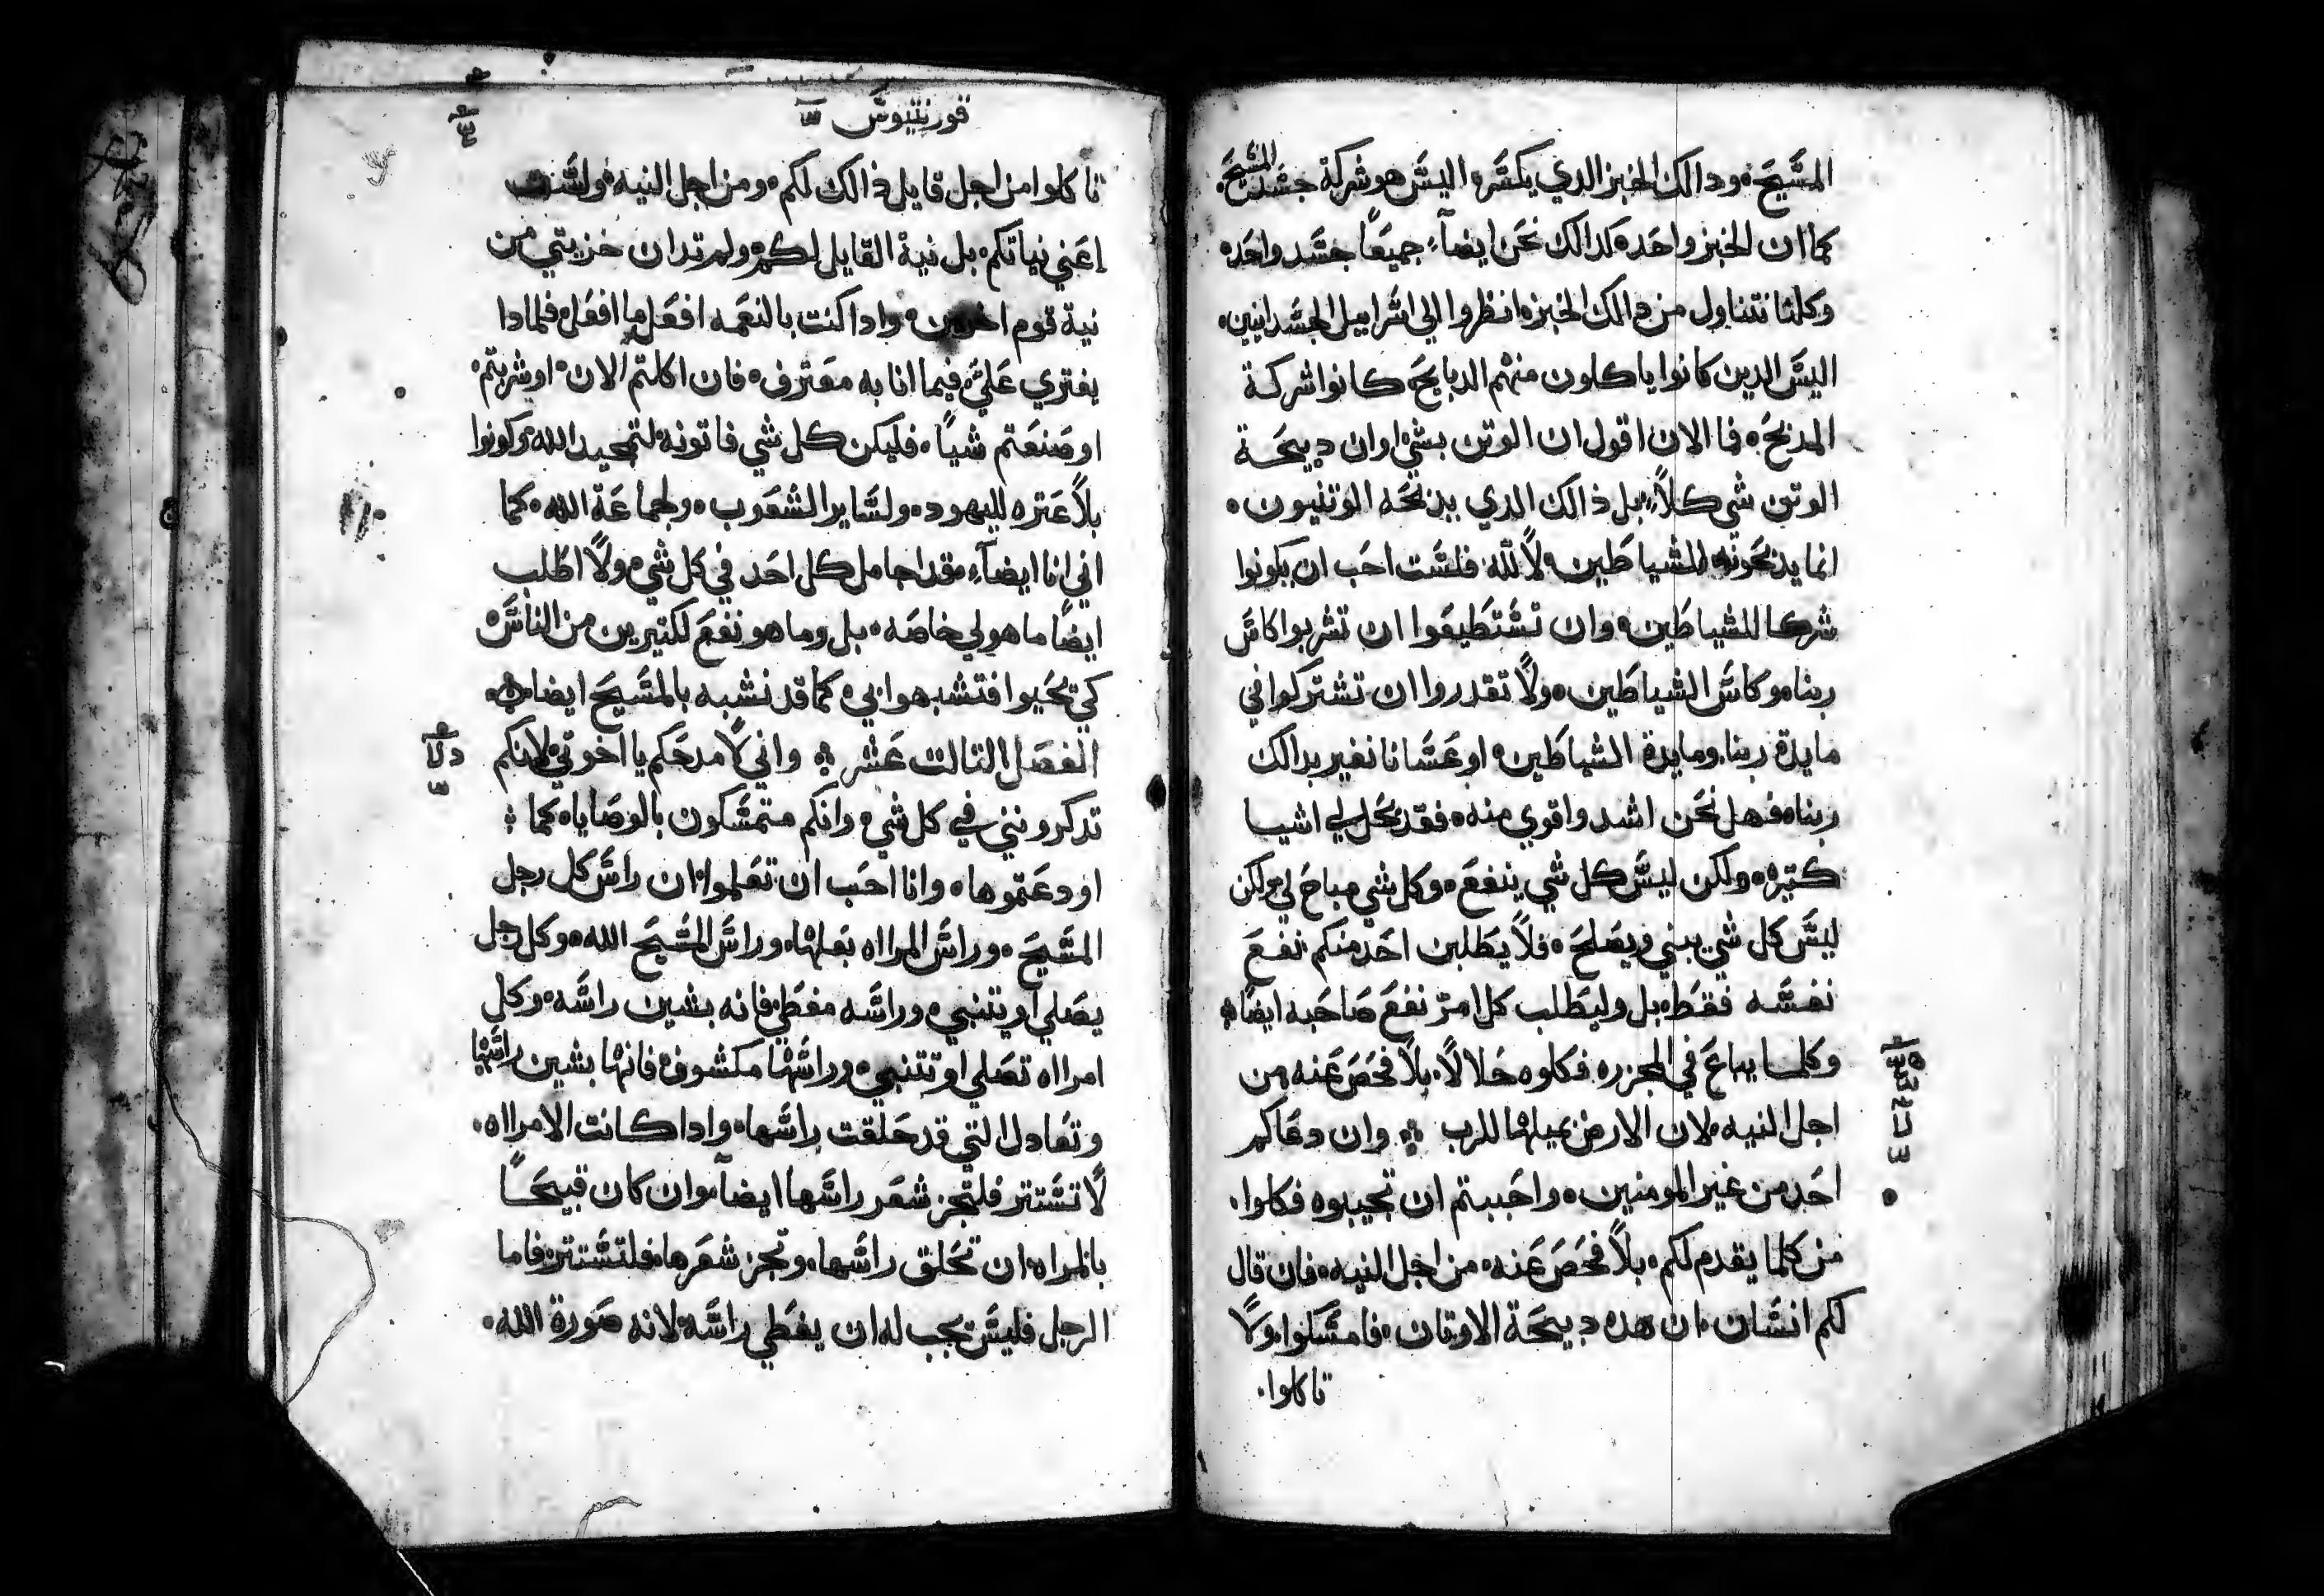 المسيح، ودالك الخبز الدي يكسر، اليس هو شركة جسد المسيح.
كما ان الخبز واحد، كدالك نحن ايضاً جميعاً جسد واحد،
وكلنا نتناول من دالك الخبز، انظروا الي اسراييل الجسدانيين،
اليس الدين كانوا ياكلون منهم الدبايح كانوا شركة
المدبح، فا الان اقول ان الوتن بشي، او ان دبيحة
الوتن شي كلا، بل ذالك الدي يدبحه الوتنيون،
انما يدبحونه للشياطين، لا لله، فلست احب ان يكونوا
شركا للشياطين، وان تستطيعوا ان تشربوا كاس
ربنا، وكاس الشياطين، ولا تقدروا ان تشتركوا في
مايدة ربنا، ومايدة الشياطين، او عسانا نغير بدالك
ربنا، فهل نحن اشد واقوي منه، فقد يحل لي اشيا
كتيره، ولكن ليس كل شي ينفع، وكل شي مباح لي، ولكن
ليس كل شي يبني ويصلح، فلا يطلبن احد منكم نفع
نفسه فقط، بل وليطلب كل امر نفع صاحبه ايضاً
وكلما يباع في المجزره فكلوه حلالاً، بلا فحص عنه من
اجل النيه، لان الارض بمياها للرب وان دعاكم
احد من غير المومنين، واحببتم ان تجيبوه فكلوا،
من كلما يقدم لكم، بلا فحص عنه، من اجل النيه، فان قال
لكم انسان، ان هده دبيحة الاوتان، فامسكوا، ولا
تاكلوا.
قورنتيوس
تاكلوا من اجل قايل ذالك لكم، ومن اجل النيه، ولست
اعني نياتكم، بل نية القايل لكم، ولم تدان خزيتي من
نية قوم اخرين، وادا كنت بالنعمه افعل ما افعل، فلمادا
يفتري علي، فيما انا به معترف، فان اكلتم الان، او شربتم،
او صنعتم شياً، فليكن كل شي فاتونه لتمجيد الله، وكونوا
بلا عتره لليهود، ولساير الشعوب، ولجماعة الله، كما
اني انا ايضاً، مقد اجامل كل احد في كل شي، ولا اطلب
ايضاً ما هو لي خاصه، بل وما هو نفع لكتيرين من الناس،
كي تحيوا فتشبهوا بي، كما قد نشبه بالمسيح ايضا
الفصل التالت عشر واني لامدحكم يا اخوتي لانكم
تدكرونني في كل شي، وانكم متمسكون بالوصايا، كما
اودعتموها، وانا احب ان تعلموا، ان راس كل رجل
المسيح، وراس المراه بعلها، وراس المسيح الله، وكل رجل
يصلي او يتنبي، وراسه مغطي، فانه بشين راسه، وكل
امراه تصلي او تتنبي، وراسها مكشوف، فانها بشين راسها
وتعادل التي قد حلقت راسها، وادا كانت الامراه،
لا تستتر فلتجز شعر راسها ايضاً، وان كان قبيحاً
بالمراه، ان تحلق راسها، وتجز شعرها، فلتستتر، فاما
الرجل فليس يجب له ان يغطي راسه، لانه صورة الله،